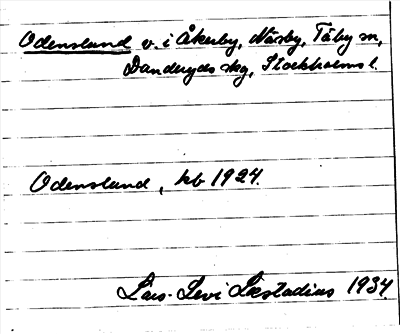 Odenslund v. i Åkerby, Näsby, Täby sn,
Danderyds skg, Stockholms l.
Odenslund, kb 1924.
Lars-Levi Læstadius 1934